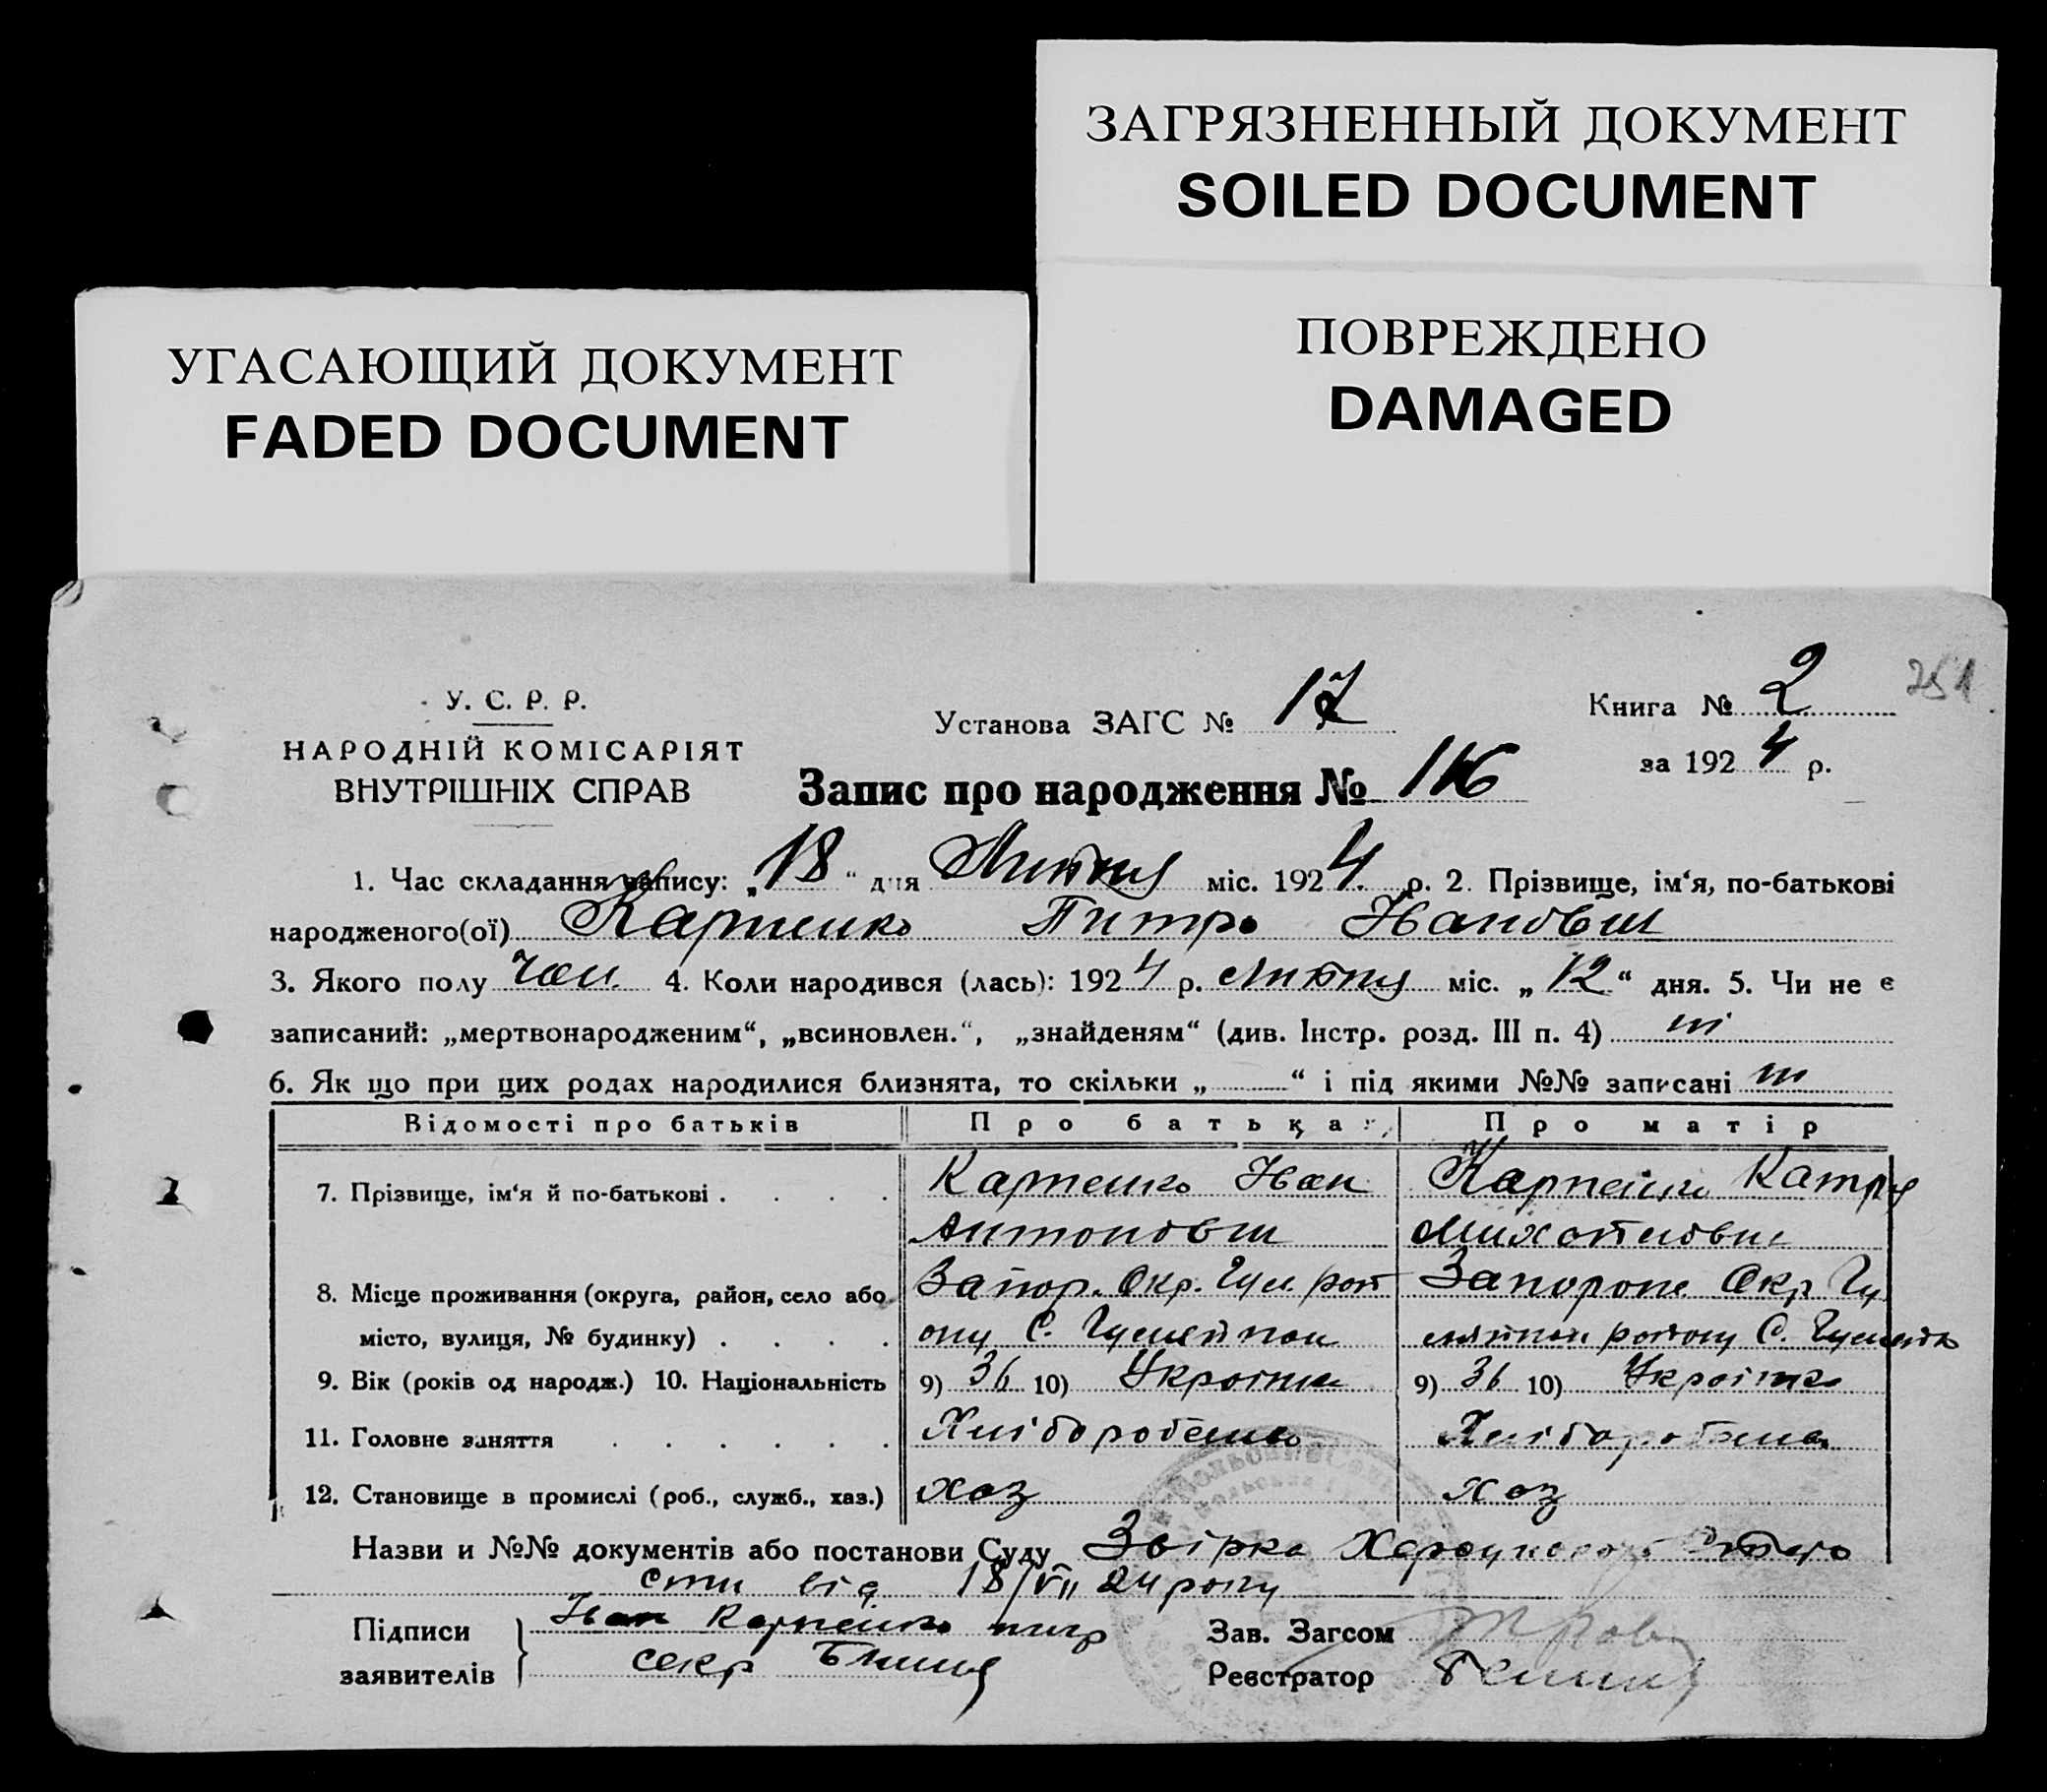 ЗАГРЯЗНЕННЫЙ ДОКУМЕНТ
SOILED DOCUMENT
ПОВРЕЖДЕНО
DAMAGED
УГАСАЮЩИЙ ДОКУМЕНТ
FADED DOCUMENT
251
У. С. Р. Р.
НАРОДНІЙ КОМІСАРІЯТ
ВНУТРІШНІХ СПРАВ
Установа ЗАГС № 17
Книга № 2
за 1924 р.
Запис про народження № 116
1. Час складання запису: „18“ дня Липня міс. 1924 р. 2. Прізвище, ім‘я, по-батькові
народженого(ої) Карпенко Питро Іванович
3. Якого полу чол. 4. Коли народився (лась): 1924 р. Липня міс. „12“ дня. 5. Чи не є
записаний: „мертвонародженим“, „всиновлен.“, „знайденям“ (див. Інстр. розд. III п. 4) ні
6. Як що при цих родах народилися близнята, то скільки „ “ і під якими №№ записані ні
Відомості про батьків Про батька Про матір
7. Прізвище, ім‘я й по-батькові . . . . Карпенко Іван Карпенко Катря
Антонович Михайловна
8. Місце проживання (округа, район, село або Запор. Окр. Гул. рай Запорож. Окр Гу
місто, вулиця, № будинку) . . . . ону С. Гуляйполе ляйпол району С. Гуляйп
9. Вік (років од народж.) 10. Національність 9) 36 10) Україне 9) 36 10) Україн
11. Головне заняття . . . . . . Хліборобець Хліборобена
12. Становище в промислі (роб., служб., хаз.) хоз хоз
Назви и №№ документів або постанови Суду Звірка
сти від 18/VII 24 року
Підписи
заявителів
Іван Карпенко
секр
Зав. Загсом
Реєстратор